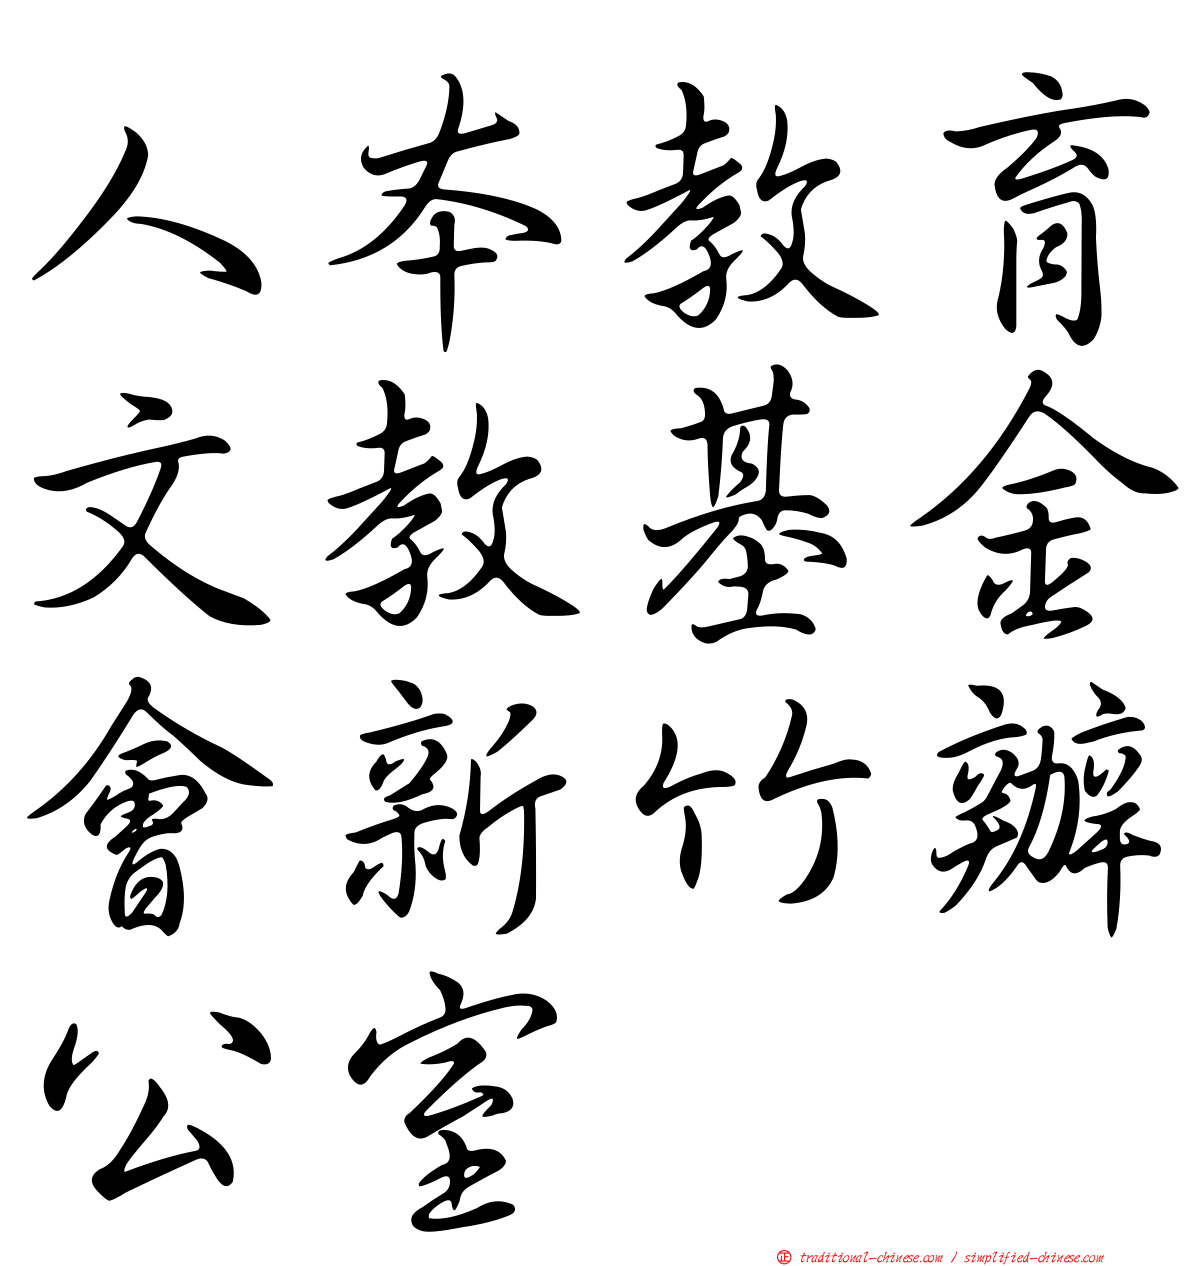 人本教育
文教基金
會新竹辦
公室
正 traditional-chinese.com / simplified-chinese.com